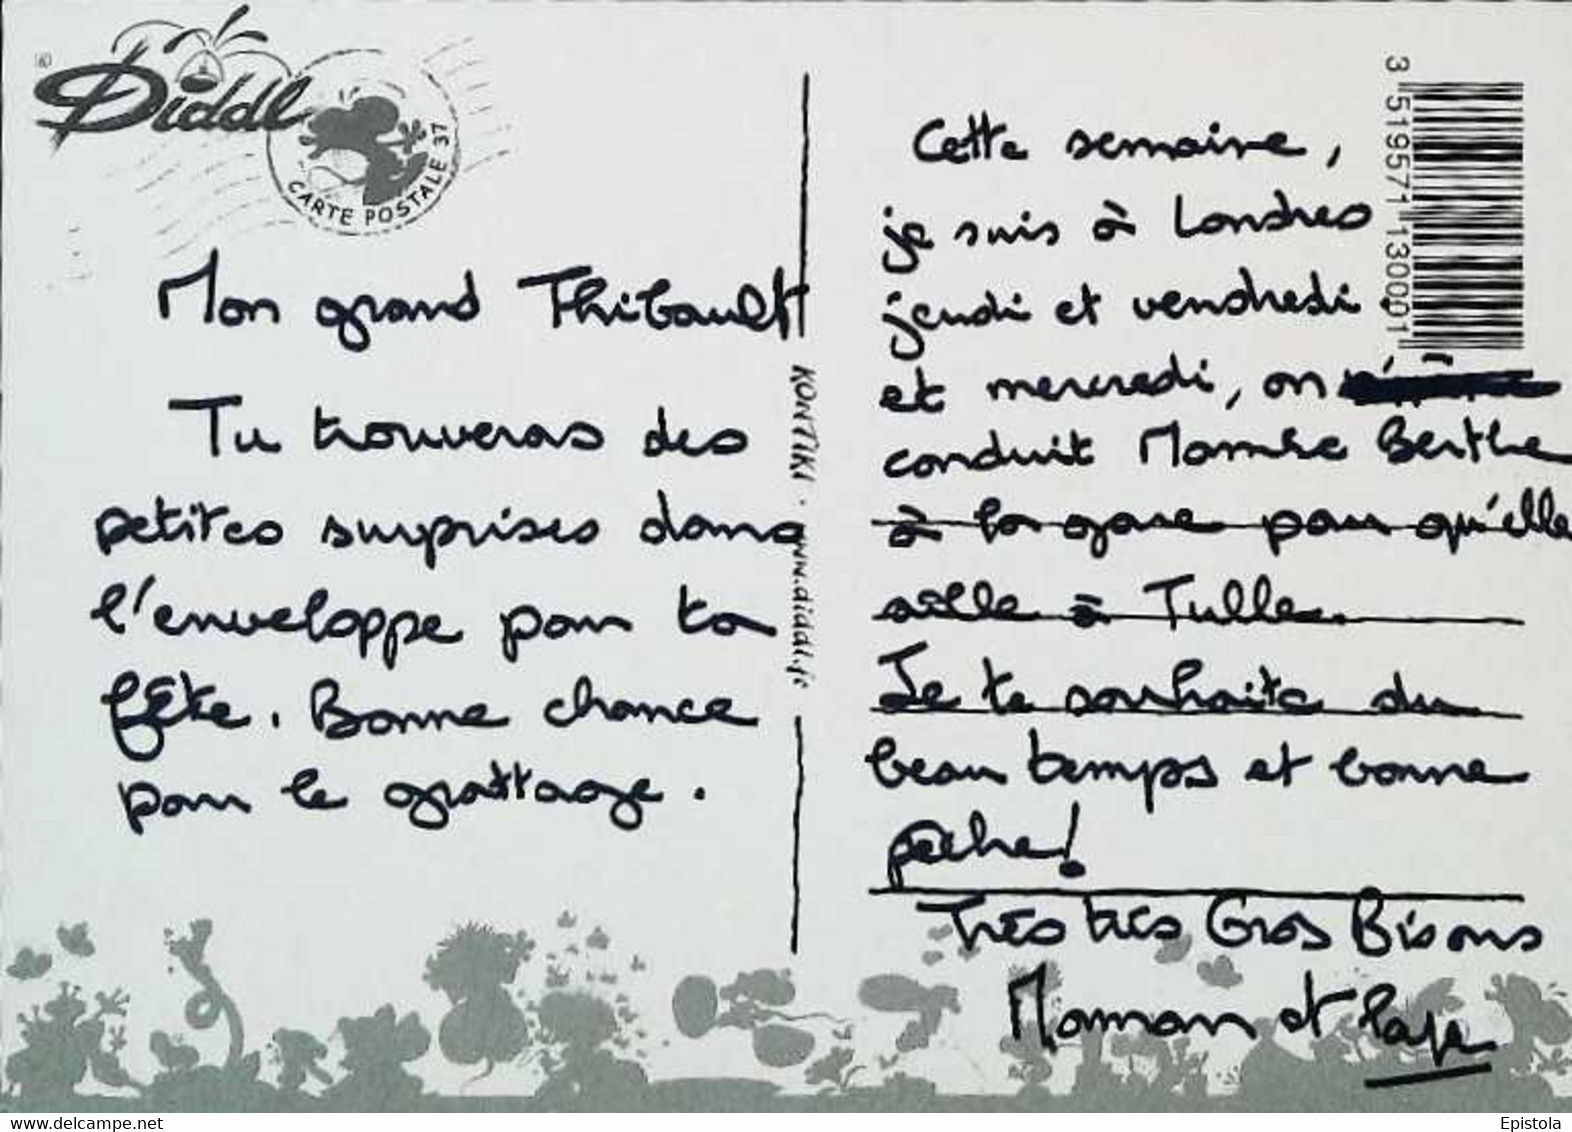 Diddl
CARTE POSTALE 37
Mon grand Thibault
Tu trouveras des
petites surprises dans
l'enveloppe pour ta
fête. Bonne chance
pour le grattage.
KONTIKI · www.diddl.fr
3 519571 130001
Cette semaine,
je suis à Londres
jeudi et vendredi
et mercredi, on
conduit Mamée Berthe
à la gare pour qu'elle
aille à Tulle.
Je te souhaite du
beau temps et bonne
pêche!
Très très Gros Bisous
Maman et Papa
www.delcampe.net
Epistola